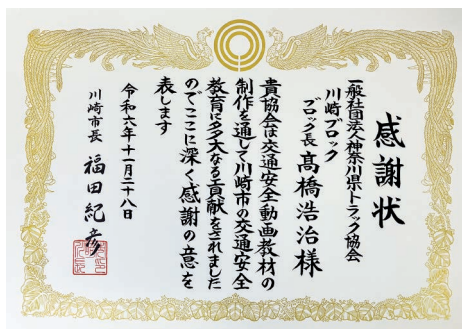 感謝状
一般社団法人神奈川県トラック協会
川崎ブロック
ブロック長 髙橋浩治様
貴協会は交通安全動画教材の
制作を通して川崎市の交通安全
教育に多大なる貢献をされました
のでここに深く感謝の意を
表します
令和六年十一月二十八日
川崎市長 福田紀彦